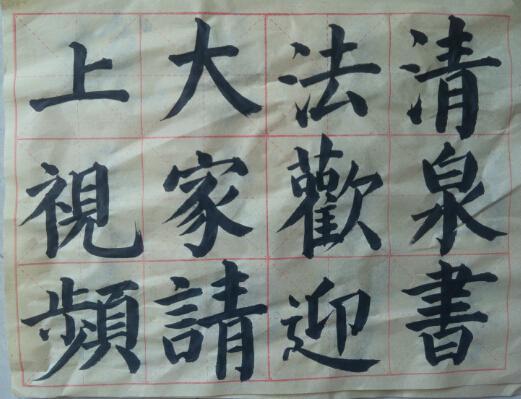 清泉書
法歡迎
大家請
上視頻